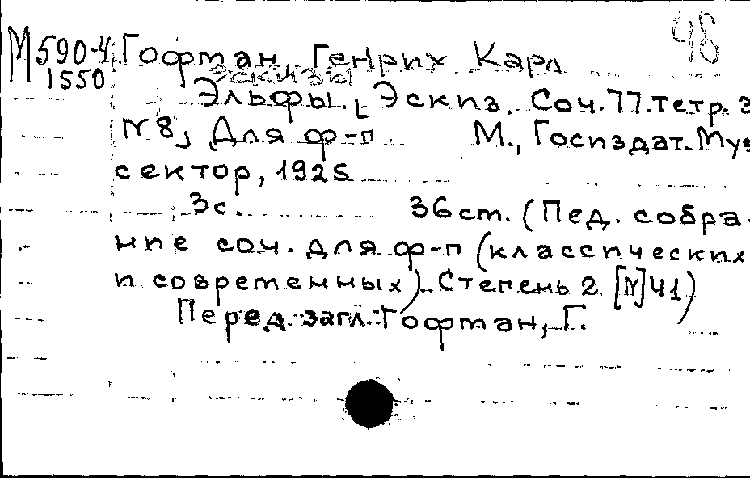 М590-4 Гофман Генрих Карл 48
1550 эскизы
Эльфы. [Эскиз. Соч. 77. тетр. 3
N 8, Для ф-п М., Госиздат. Муз
сектор, 1925
3с. 36 ст. (Пед. собра-
ние соч. для ф-п (классических
и современных). Степень 2 [N] 41)
Перед. загл.: Гофман, Г.